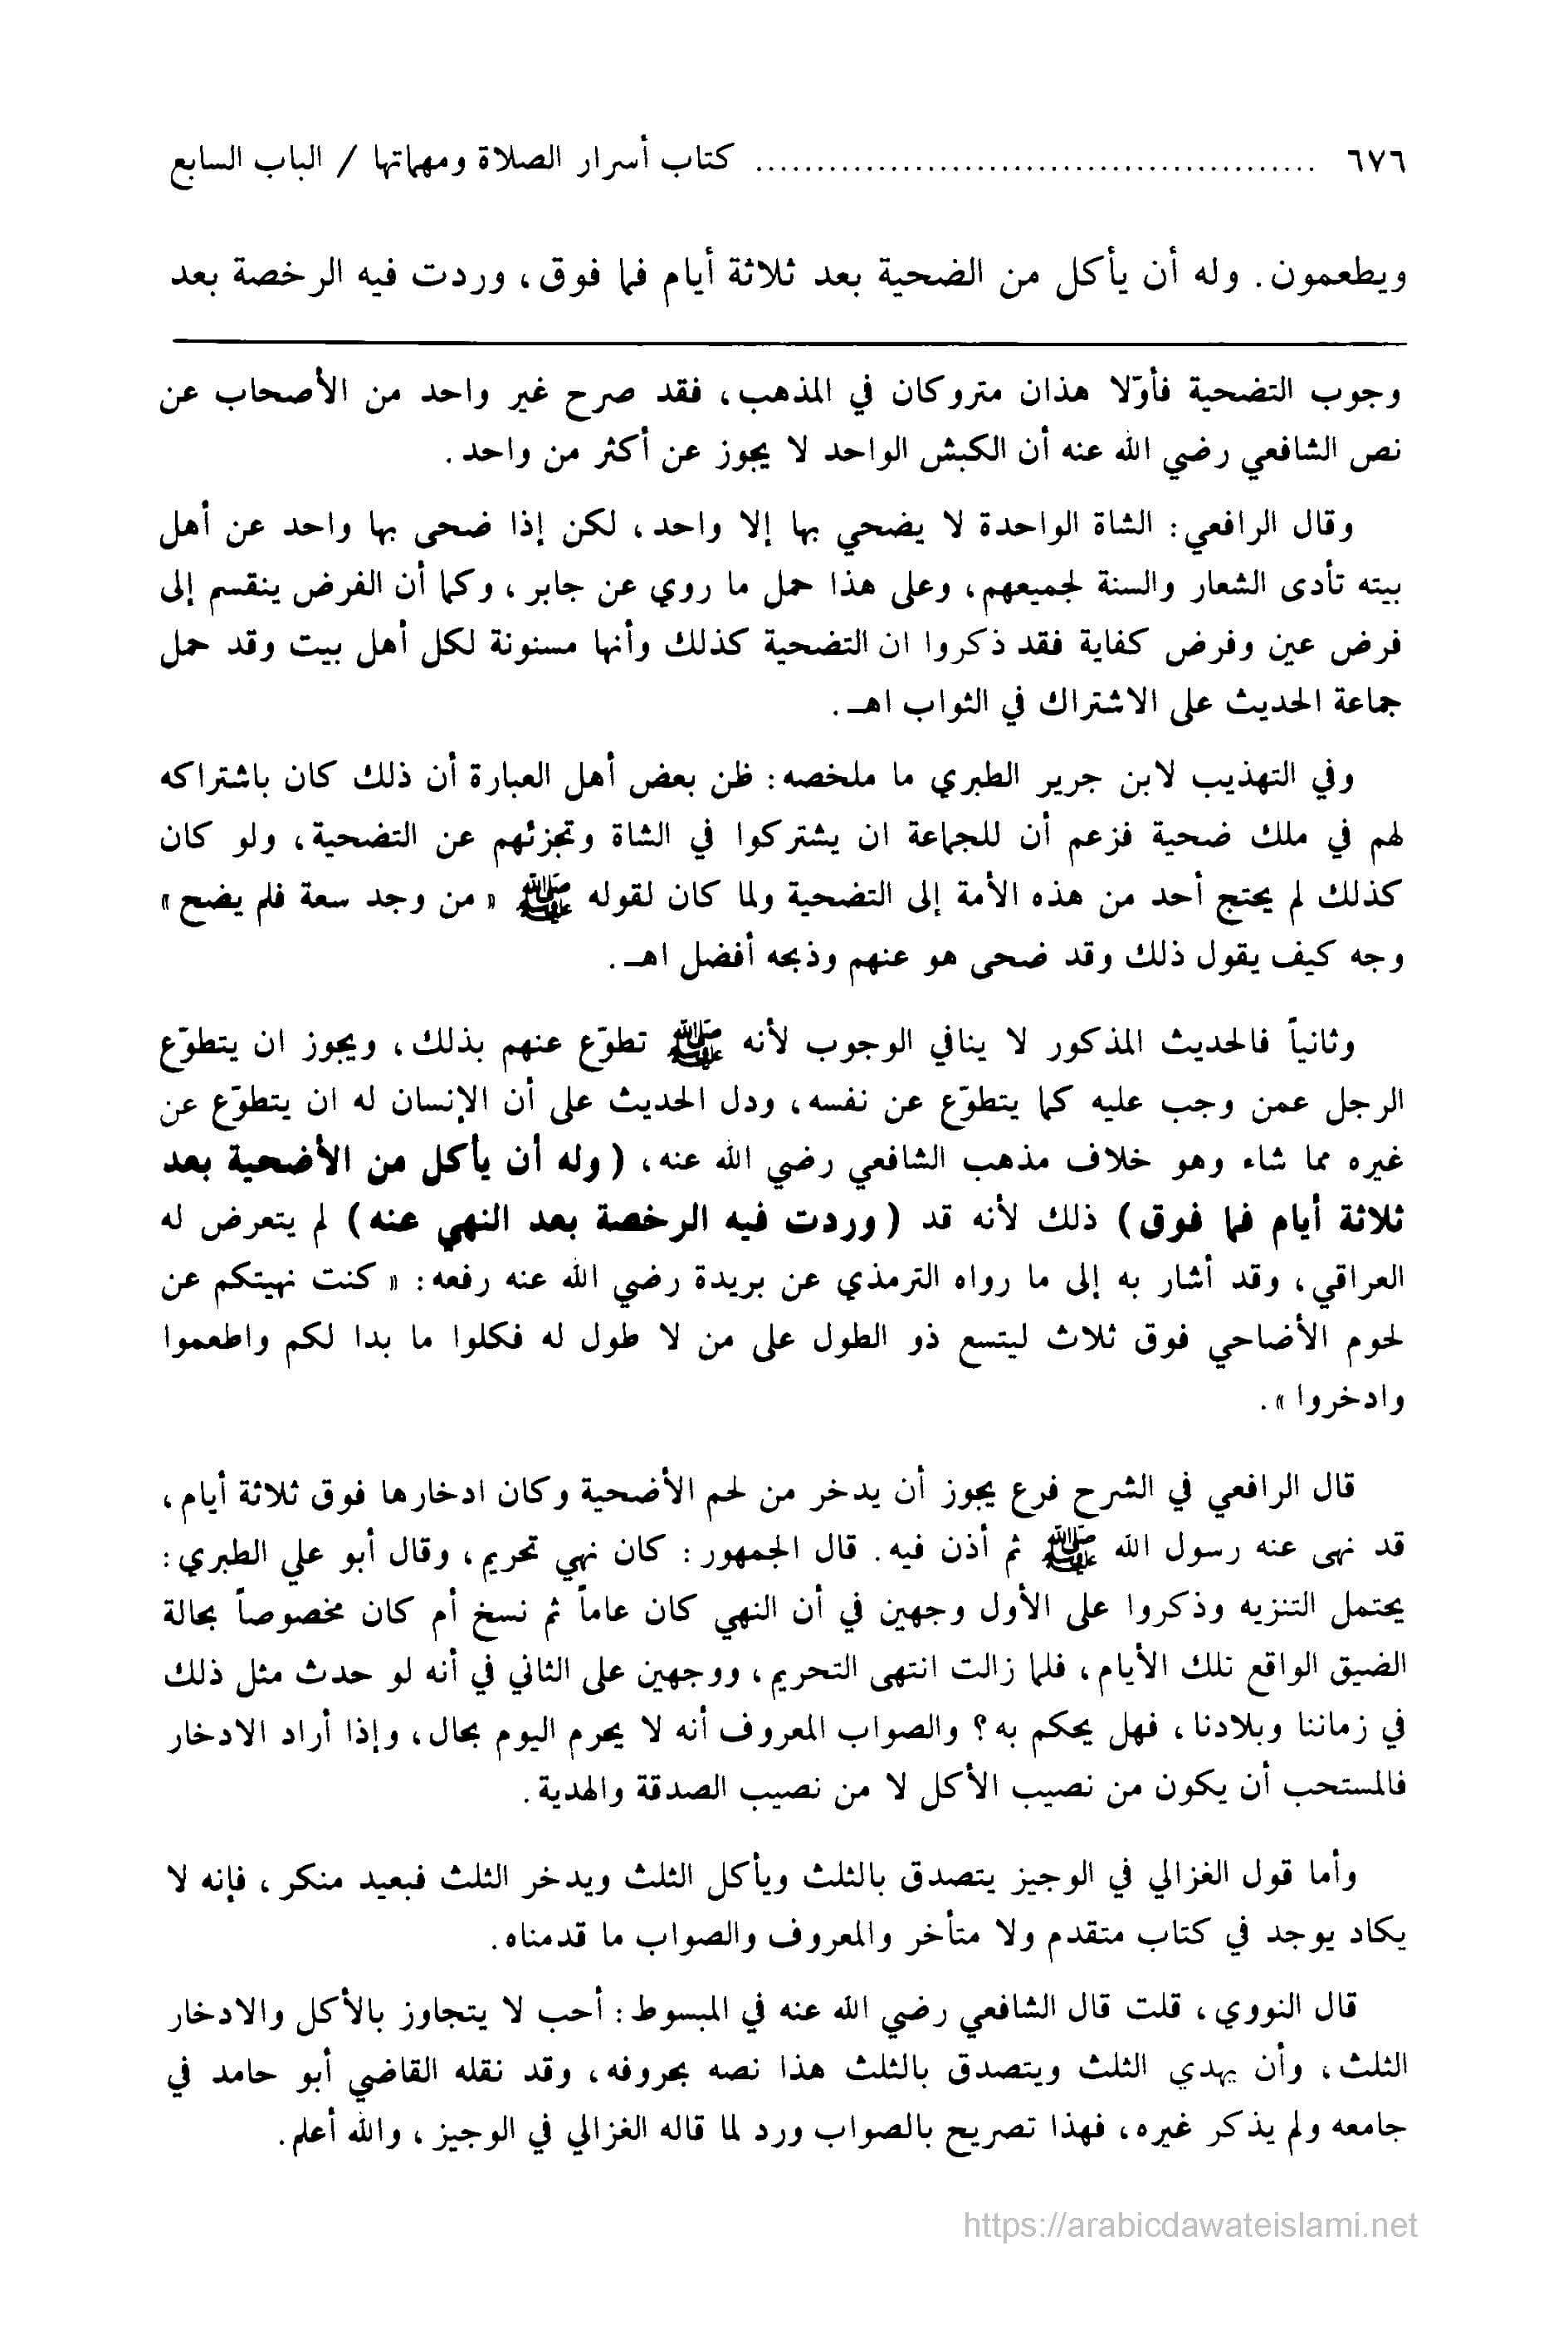 ٦٧٦ .............................................. كتاب أسرار الصلاة ومهماتها / الباب السابع
ويطعمون. وله أن يأكل من الضحية بعد ثلاثة أيام فما فوق، وردت فيه الرخصة بعد
وجوب التضحية فأوّلا هذان متروكان في المذهب، فقد صرح غير واحد من الأصحاب عن
نص الشافعي رضي الله عنه أن الكبش الواحد لا يجوز عن أكثر من واحد.
وقال الرافعي: الشاة الواحدة لا يضحي بها إلا واحد، لكن إذا ضحى بها واحد عن أهل
بيته تأدى الشعار والسنة لجميعهم، وعلى هذا حمل ما روي عن جابر، وكما أن الفرض ينقسم إلى
فرض عين وفرض كفاية فقد ذكروا ان التضحية كذلك وأنها مسنونة لكل أهل بيت وقد حمل
جماعة الحديث على الاشتراك في الثواب اهـ.
وفي التهذيب لابن جرير الطبري ما ملخصه: ظن بعض أهل العبارة أن ذلك كان باشتراكه
لهم في ملك ضحية فزعم أن للجماعة ان يشتركوا في الشاة وتجزئهم عن التضحية، ولو كان
كذلك لم يحتج أحد من هذه الأمة إلى التضحية ولما كان لقوله ﷺ «من وجد سعة فلم يضح»
وجه كيف يقول ذلك وقد ضحى هو عنهم وذبحه أفضل اهـ.
وثانياً فالحديث المذكور لا ينافي الوجوب لأنه ﷺ تطوّع عنهم بذلك، ويجوز ان يتطوّع
الرجل عمن وجب عليه كما يتطوّع عن نفسه، ودل الحديث على أن الإنسان له ان يتطوّع عن
غيره مما شاء وهو خلاف مذهب الشافعي رضي الله عنه، (وله أن يأكل من الأضحية بعد
ثلاثة أيام فما فوق) ذلك لأنه قد (وردت فيه الرخصة بعد النهي عنه) لم يتعرض له
العراقي، وقد أشار به إلى ما رواه الترمذي عن بريدة رضي الله عنه رفعه: «كنت نهيتكم عن
لحوم الأضاحي فوق ثلاث ليتسع ذو الطول على من لا طول له فكلوا ما بدا لكم واطعموا
وادخروا».
قال الرافعي في الشرح فرع يجوز أن يدخر من لحم الأضحية وكان ادخارها فوق ثلاثة أيام،
قد نهى عنه رسول الله ﷺ ثم أذن فيه. قال الجمهور: كان نهي تحريم، وقال أبو علي الطبري:
يحتمل التنزيه وذكروا على الأول وجهين في أن النهي كان عاماً ثم نسخ أم كان مخصوصاً بحالة
الضيق الواقع تلك الأيام، فلما زالت انتهى التحريم، ووجهين على الثاني في أنه لو حدث مثل ذلك
في زماننا وبلادنا، فهل يحكم به؟ والصواب المعروف أنه لا يحرم اليوم بحال، وإذا أراد الادخار
فالمستحب أن يكون من نصيب الأكل لا من نصيب الصدقة والهدية.
وأما قول الغزالي في الوجيز يتصدق بالثلث ويأكل الثلث ويدخر الثلث فبعيد منكر، فإنه لا
يكاد يوجد في كتاب متقدم ولا متأخر والمعروف والصواب ما قدمناه.
قال النووي، قلت قال الشافعي رضي الله عنه في المبسوط: أحب لا يتجاوز بالأكل والادخار
الثلث، وأن يهدي الثلث ويتصدق بالثلث هذا نصه بحروفه، وقد نقله القاضي أبو حامد في
جامعه ولم يذكر غيره، فهذا تصريح بالصواب ورد لما قاله الغزالي في الوجيز، والله أعلم.
https://arabicdawateislami.net